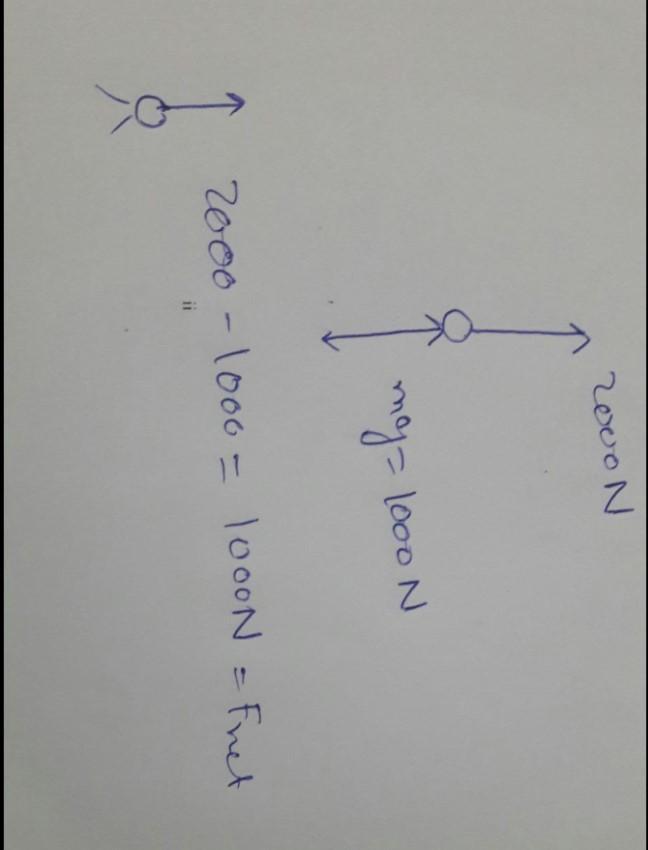 2000N
mg = 1000N
2000 - 1000 = 1000N = Fnet